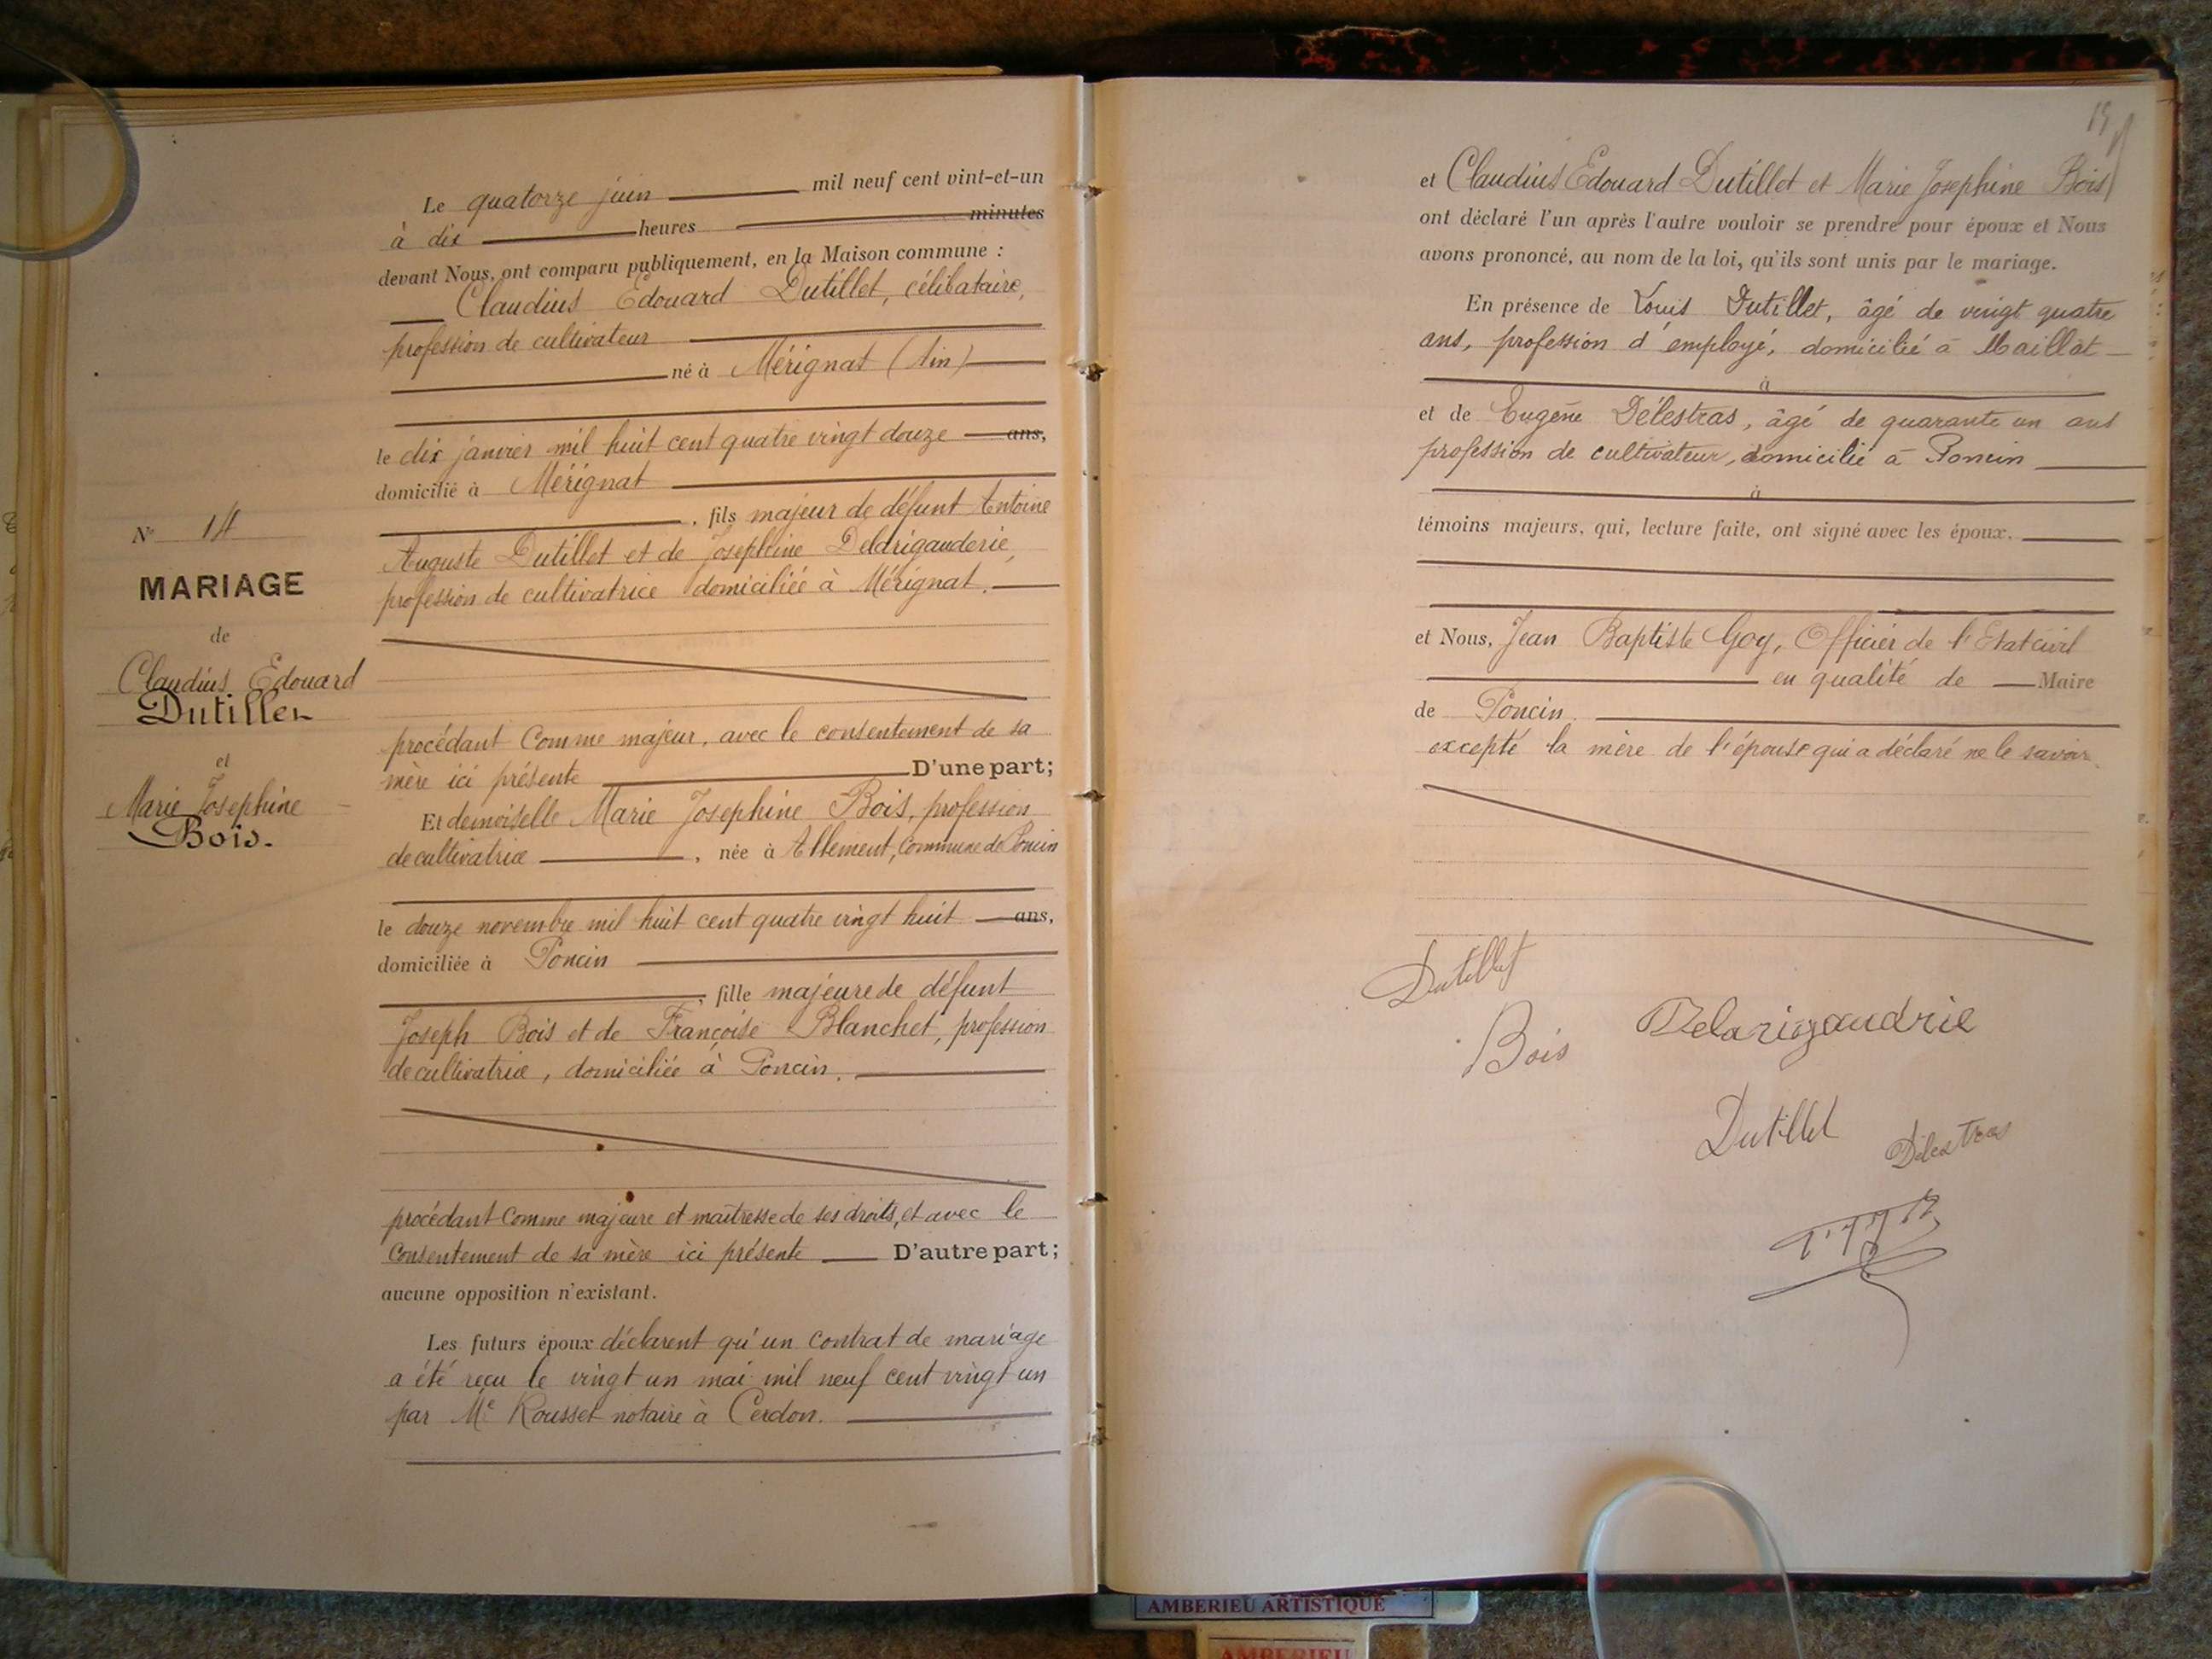 N° 14
MARIAGE
de
Claudius Edouard
Dutillet
et
Marie Josephine
Bois.
Le quatorze juin mil neuf cent vint-et-un
à dix heures minutes
devant Nous, ont comparu publiquement, en la Maison commune :
Claudius Edouard Dutillet, célibataire,
profession de cultivateur
né à Mérignat (Ain)
le dix janvier mil huit cent quatre vingt douze ans,
domicilié à Mérignat
, fils majeur de défunt Antoine
Auguste Dutillet et de Josephine Deldrigauderie,
profession de cultivatrice domiciliée à Mérignat.
procédant Comme majeur, avec le consentement de sa
mère ici présente D'une part;
Et demoiselle Marie Josephine Bois, profession
de cultivatrice , née à Allement, Commune de Poncin
le douze novembre mil huit cent quatre vingt huit ans,
domiciliée à Poncin
, fille majeure de défunt
Joseph Bois et de Françoise Blanchet, profession
de cultivatrice, domiciliée à Poncin.
procédant Comme majeure et maîtresse de ses droits, et avec le
Consentement de sa mère ici présente D'autre part;
aucune opposition n'existant.
Les futurs époux déclarent qu'un Contrat de mariage
a été reçu le vingt un mai mil neuf cent vingt un
par Me Rousset notaire à Cerdon.
19
et Claudius Edouard Dutillet et Marie Josephine Bois
ont déclaré l'un après l'autre vouloir se prendre pour époux et Nous
avons prononcé, au nom de la loi, qu'ils sont unis par le mariage.
En présence de Louis Dutillet, âgé de vingt quatre
ans, profession d'employé, domicilié à Maillat
à
et de Eugène Délestras, âgé de quarante un ans
profession de cultivateur, domicilié à Poncin
à
témoins majeurs, qui, lecture faite, ont signé avec les époux.
et Nous, Jean Baptiste Goy, Officier de l'Etat civil
en qualité de Maire
de Poncin.
excepté la mère de l'épouse qui a déclaré ne le savoir.
Dutillet
Bois
Delarigaudrie
Dutillet
Délestras
AMBERIEU ARTISTIQUE
AMBERIEU